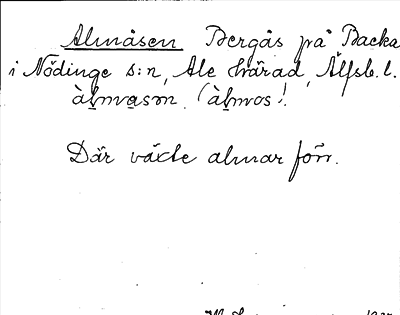 Almåsen Bergås på Backa
i Nödinge s:n, Ale härad, Älfsb. l.
àlmvasən (àlmos!
Där växte almar förr.